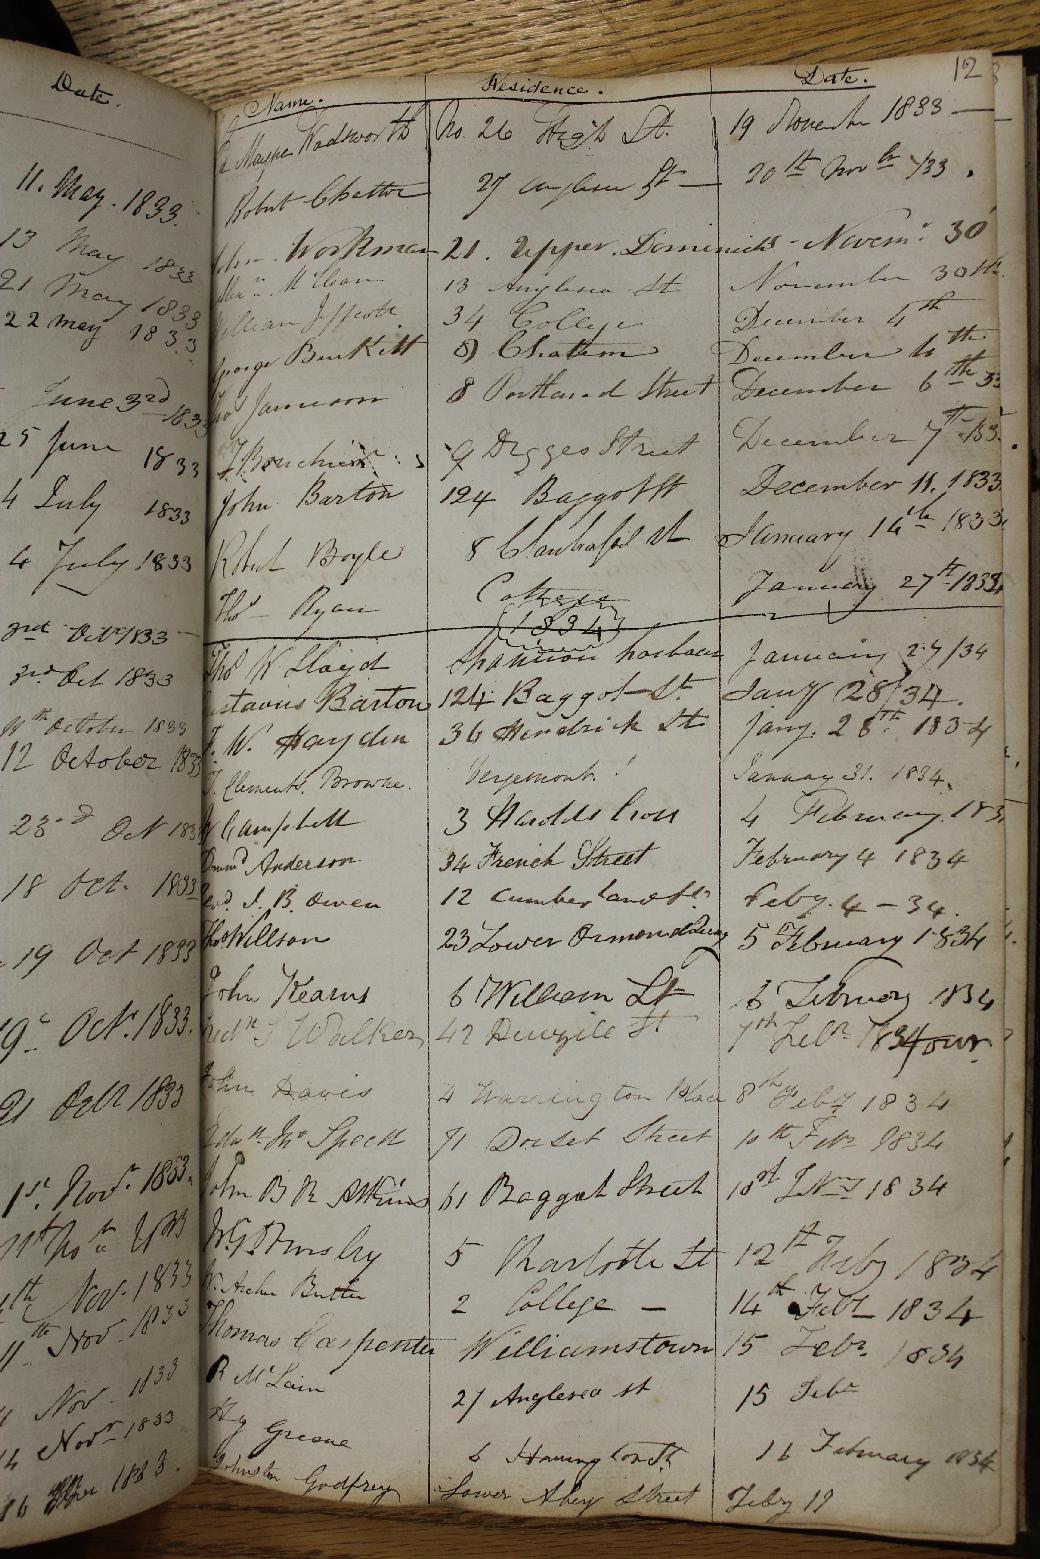 Date.
11. May. 1833.
13 May 1833
21 May 1833
22 May 1833
June 3rd 1833
25 June 1833
4 July 1833
4 July 1833
3rd Octr 1833
3rd Oct 1833
11th October 1833
12 October 1833
23rd Oct 183
18 Oct. 1833
19 Oct 1833
Octr. 1833.
21 Octr 1833
1st. Novr. 1833.
Nov. 1833
11th Nov. 1833
Nov. 1833
14 Novr 1833
16 1833.
12
Name. Residence. Date.
Mayne Wadsworth No. 26 High St. 19 November 1833
Robert Chattor 27 Anglesea St 20th Novbr /33.
John Workman 21. Upper Dominick S. Novemr. 30
McClean 13 Anglesea St November 30th
William Jeffcott 34 College December 4th
George Burkitt 8 Chatem December
Thos Jameson 8 Portland Street December 6th 33
9 Digges Street December 7th 183
John Barton 124 Baggot St December 11. 1833
Robert Boyle 8 Clanbrasil St January 14th 1833
Thos Ryan College January 27th 1833
(1834)
Thos W Lloyd Shannon harbour January 27/34
Gustavus Barton 124 Baggot St. Jany 28/34.
W. Hayden 36 Hendrick St Jany. 28th 1834
Clements. Browne. Vergemont. January 31. 1834.
W Campbell 3 Harolds Cross 4 February. 183
Anderson 34 French Street February 4 1834
Revd. J. B. Owen 12 Cumberland St. Feby. 4 - 34.
Thos Willson 23 Lower Ormond Quay 5 February 1834
John Kearns 6 William St 6 February 1834
Walker 42 St 7th Febr 1834
John Davis 4 Warrington Place 8th Feby 1834
Jno Speer 71 Dorset Street 10th Febr 1834
John B R Atkins 61 Baggot Street 1834
5 Charlotte St 12th Feby 1834
W. Archer Butler 2 College 14th Febr 1834
Thomas Carpenter Williamstown 15 Febr. 1834
R McLain 27 Anglesea St 15 Febr
Hy Greene 6 St 16 February 1834
Johnston Godfrey Lower Abey Street Feby 19